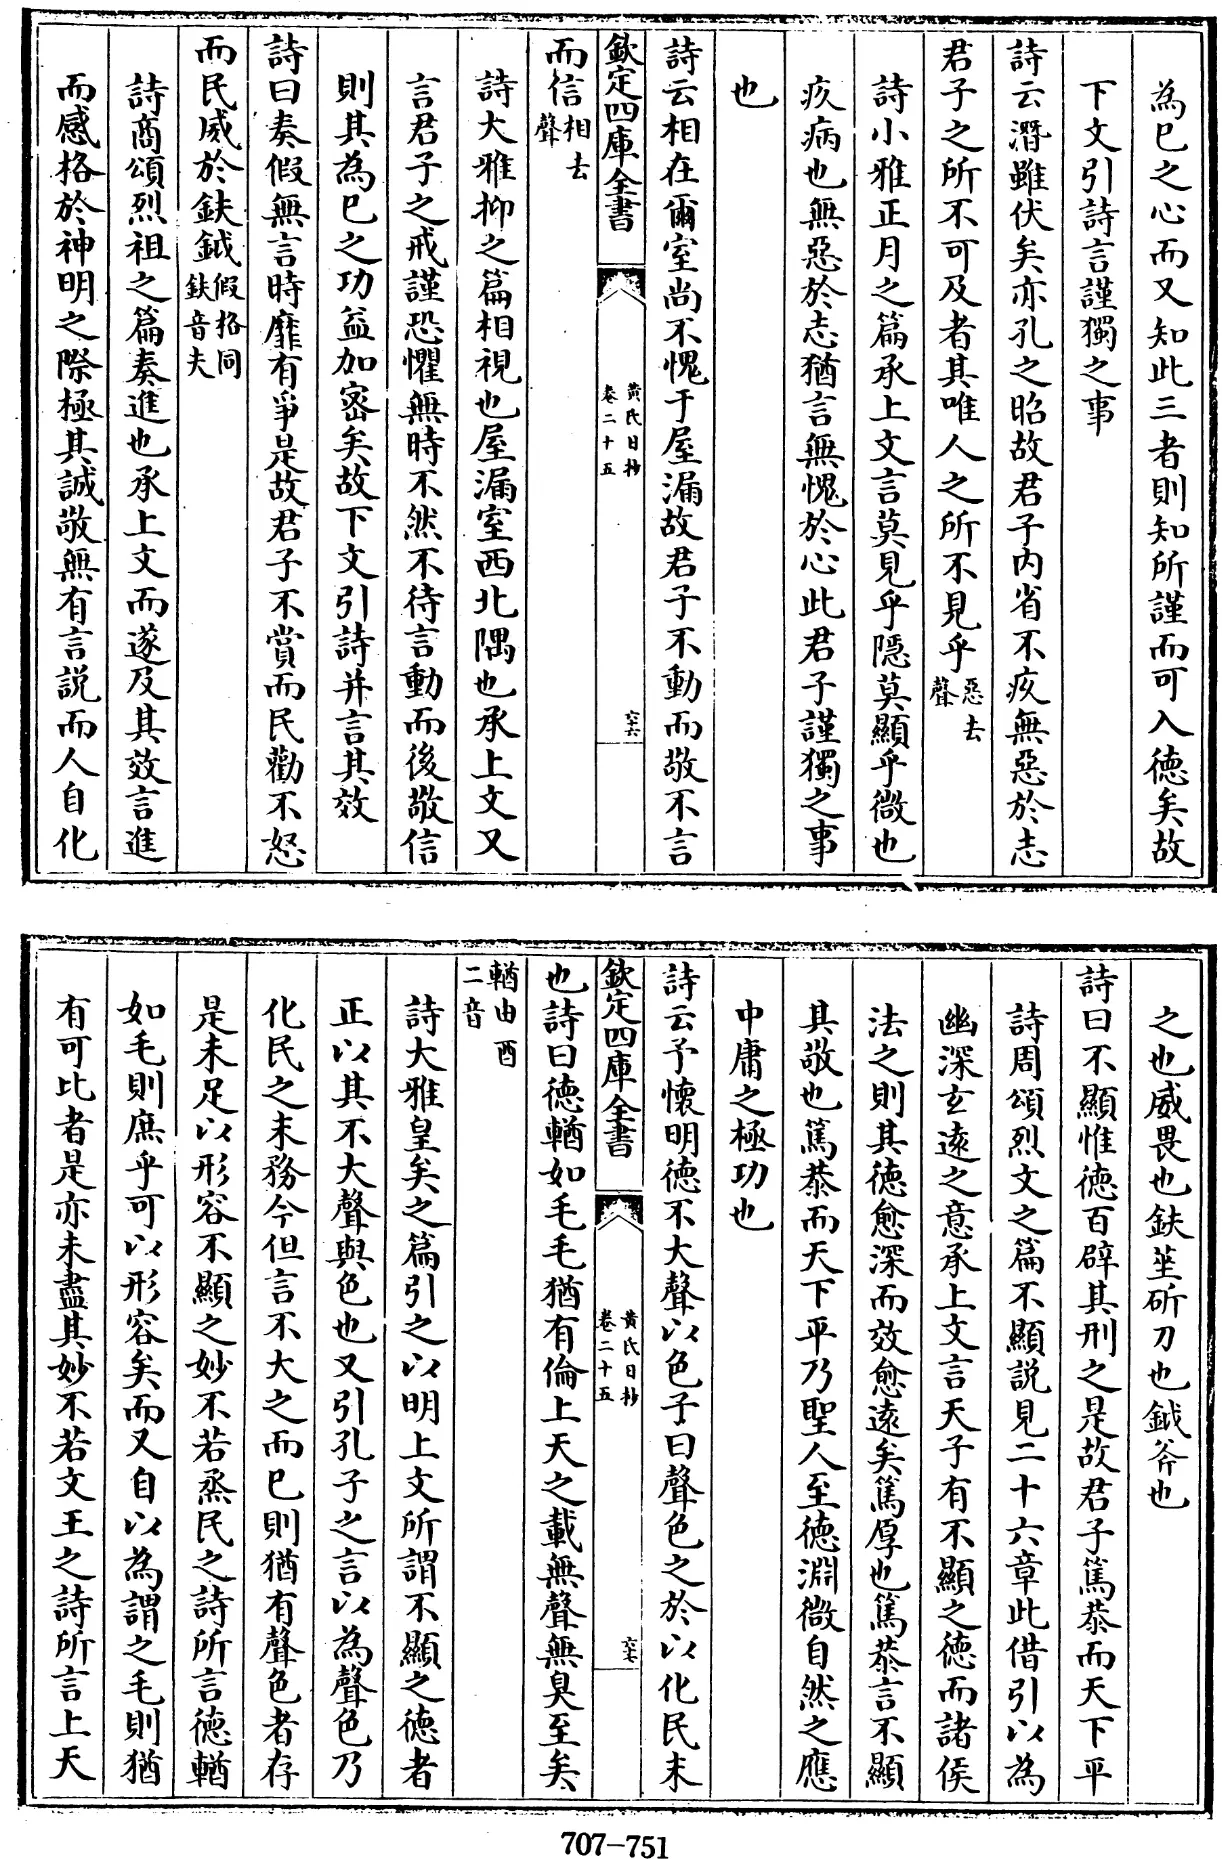 為已之心而又知此三者則知所謹而可入德矣故
下文引詩言謹獨之事
詩云潛雖伏矣亦孔之昭故君子内省不疚無惡於志
君子之所不可及者其唯人之所不見乎惡去聲
詩小雅正月之篇承上文言莫見乎隱莫顯乎微也
疚病也無惡於志猶言無愧於心此君子謹獨之事
也
詩云相在爾室尚不愧于屋漏故君子不動而敬不言
欽定四庫全書
黄氏日抄
卷二十五
六十六
而信相去聲
詩大雅抑之篇相視也屋漏室西北隅也承上文又
言君子之戒謹恐懼無時不然不待言動而後敬信
則其為已之功益加密矣故下文引詩并言其效
詩曰奏假無言時靡有爭是故君子不賞而民勸不怒
而民威於鈇鉞假格同鈇音夫
詩商頌烈祖之篇奏進也承上文而遂及其效言進
而感格於神明之際極其誠敬無有言説而人自化
之也威畏也鈇莝斫刀也鉞斧也
詩曰不顯惟德百辟其刑之是故君子篤恭而天下平
詩周頌烈文之篇不顯説見二十六章此借引以為
幽深玄遠之意承上文言天子有不顯之德而諸侯
法之則其德愈深而效愈遠矣篤厚也篤恭言不顯
其敬也篤恭而天下平乃聖人至德淵微自然之應
中庸之極功也
詩云予懷明德不大聲以色子曰聲色之於以化民末
欽定四庫全書
黄氏日抄
卷二十五
六十七
也詩曰德輶如毛毛猶有倫上天之載無聲無臭至矣
輶由酉二音
詩大雅皇矣之篇引之以明上文所謂不顯之德者
正以其不大聲與色也又引孔子之言以為聲色乃
化民之末務今但言不大之而已則猶有聲色者存
是未足以形容不顯之妙不若烝民之詩所言德輶
如毛則庶乎可以形容矣而又自以為謂之毛則猶
有可比者是亦未盡其妙不若文王之詩所言上天
707-751